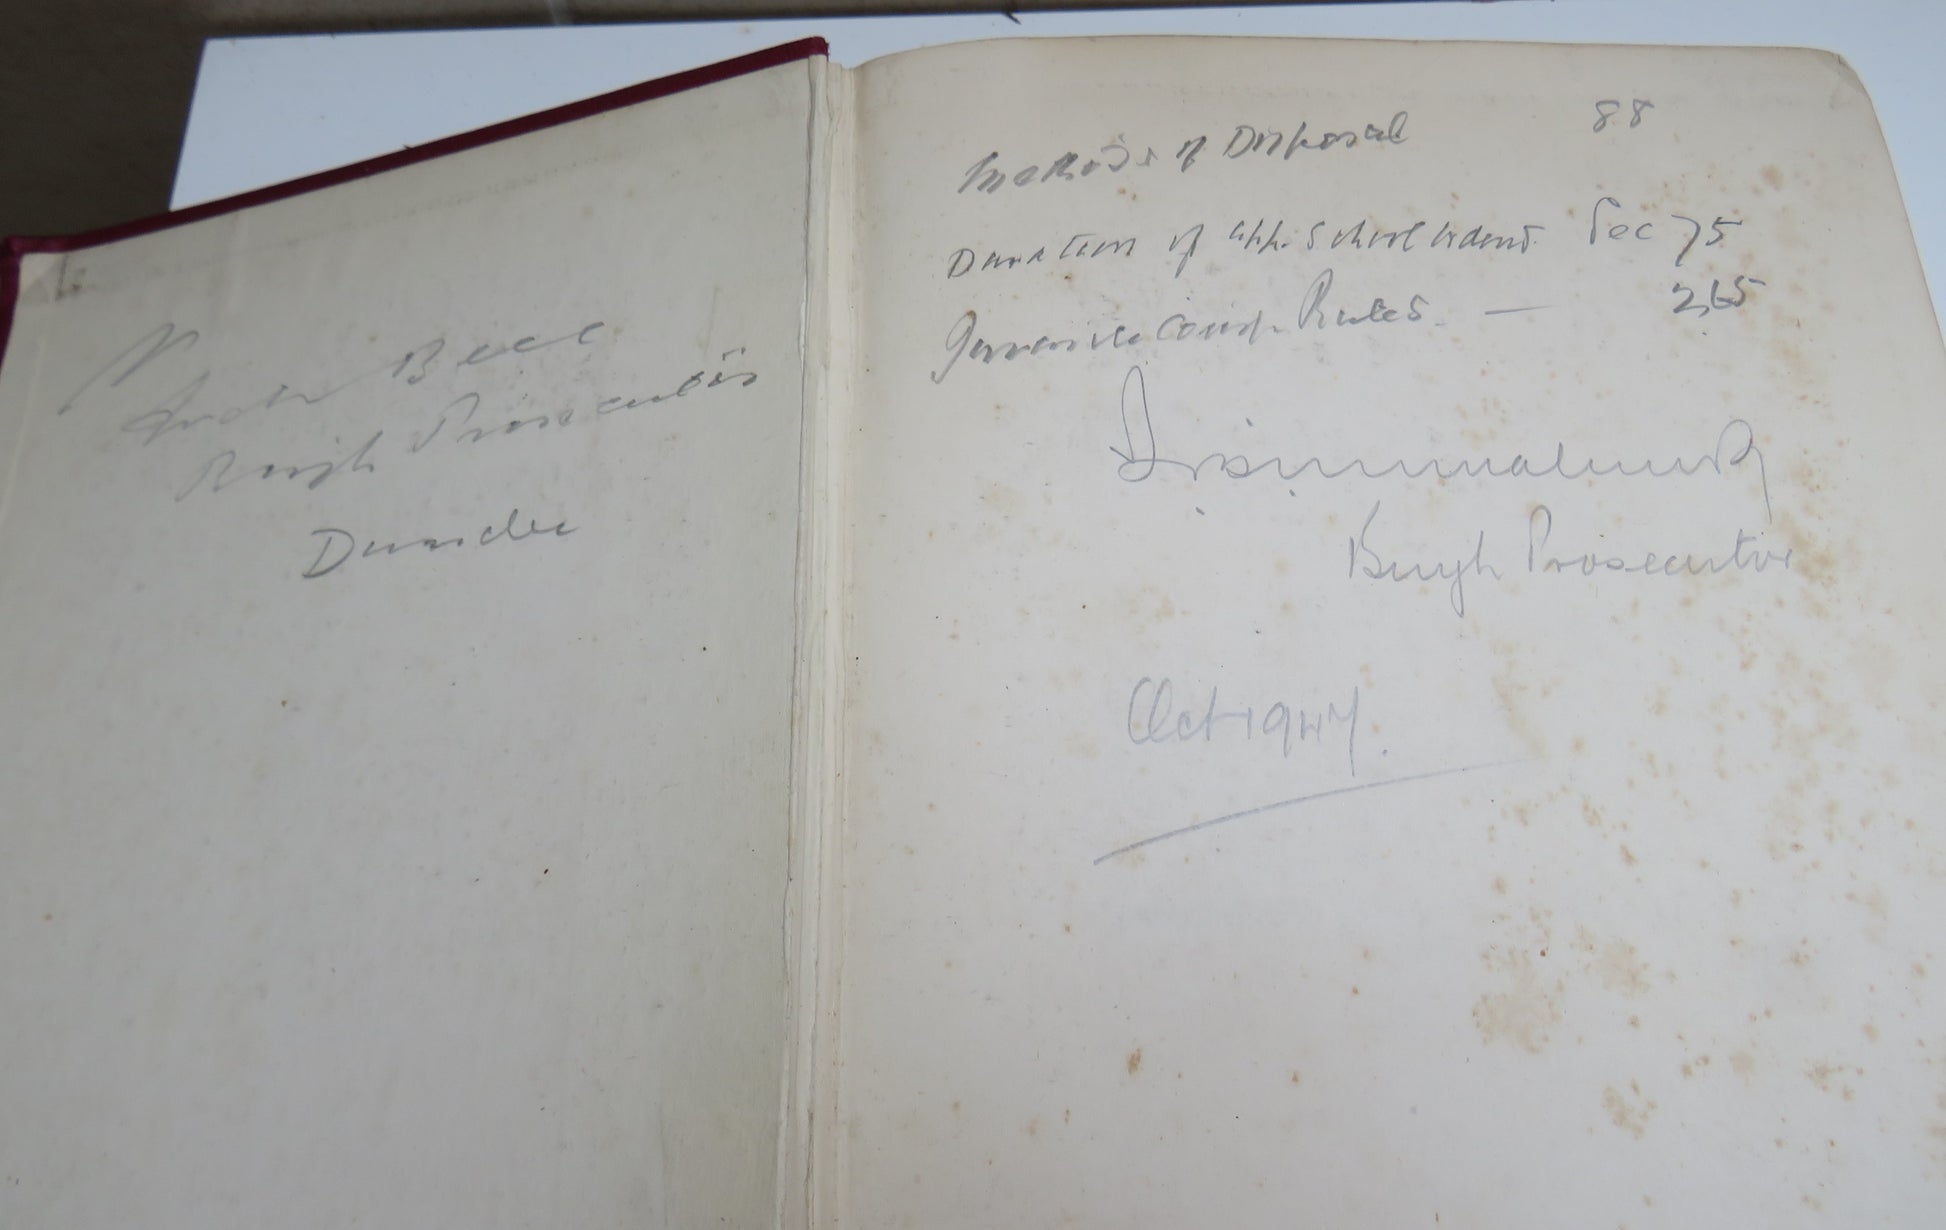 Bell
Burgh Prosecutor
Dundee
Methods of Disposal 88
Duration of app. School orders. Sec 75
Juvenile Court Rules. — 265
Burgh Prosecutor
Oct 1947.